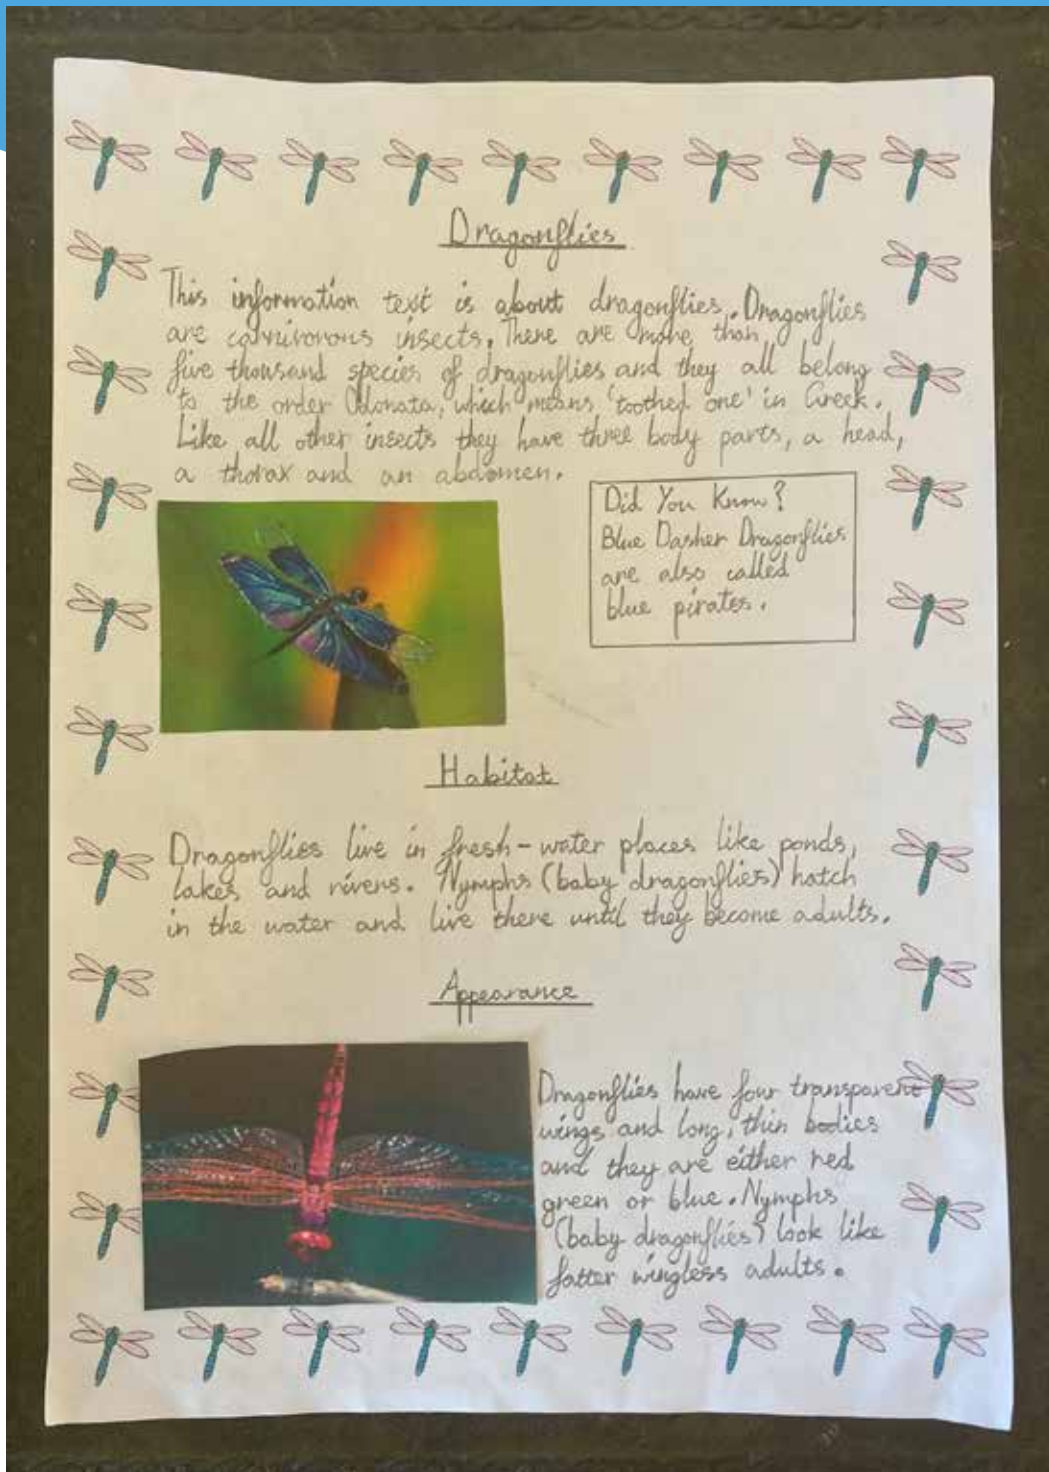 Dragonflies
This information text is about dragonflies. Dragonflies
are carnivorous insects. There are more than
five thousand species of dragonflies and they all belong
to the order Odonata, which means 'toothed one' in Greek.
Like all other insects they have three body parts, a head,
a thorax and an abdomen.
Did You Know?
Blue Dasher Dragonflies
are also called
blue pirates.
Habitat
Dragonflies live in fresh-water places like ponds,
lakes and rivers. Nymphs (baby dragonflies) hatch
in the water and live there until they become adults.
Appearance
Dragonflies have four transparent
wings and long, thin bodies
and they are either red
green or blue. Nymphs
(baby dragonflies) look like
fatter wingless adults.